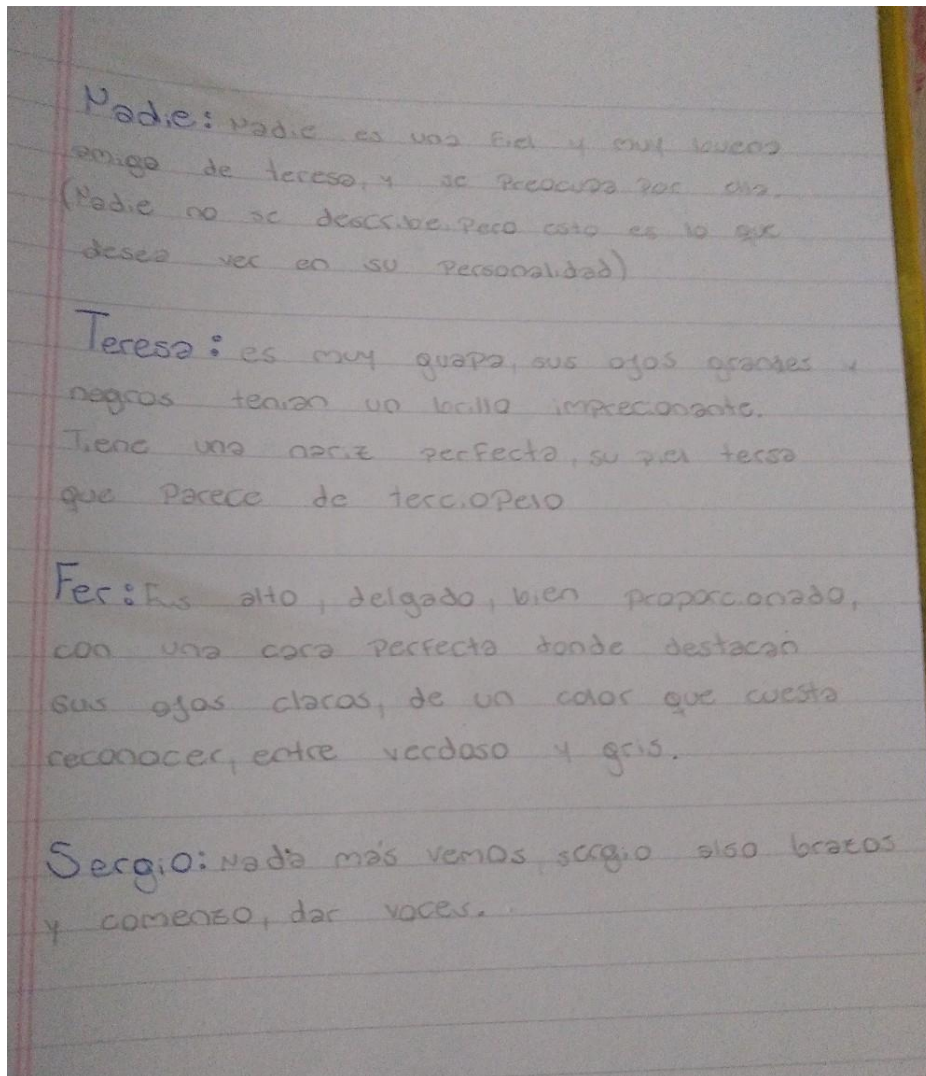 Nadie: Nadie es una fiel y muy buena
amiga de teresa, y se preocupa por ella.
(Nadie no se describe. Pero esto es lo que
desea ver en su personalidad)
Teresa: es muy guapa, sus ojos grandes y
negros tenian un brillo imprecionante.
Tiene una nariz perfecta, su piel tersa
que parece de terciopelo
Fer: Es alto, delgado, bien proporcionado,
con una cara perfecta donde destacan
sus ojos claros, de un color que cuesta
reconocer, entre verdoso y gris.
Sergio: Nada más vernos, sergio also brazos
y comenso, dar voces.